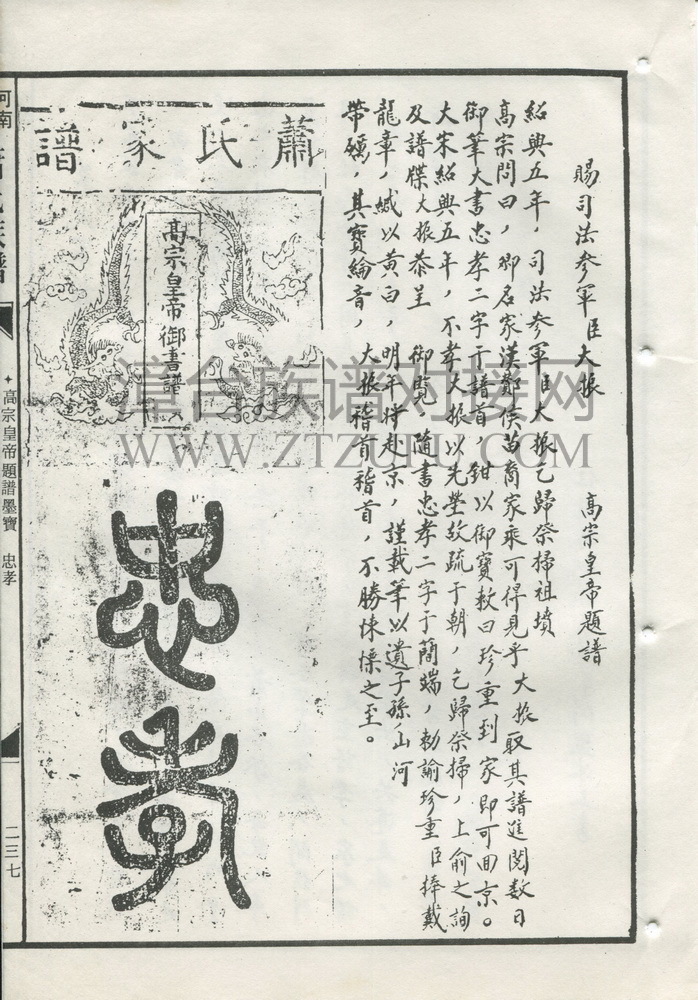 賜司法參軍臣大振　高宗皇帝題譜
紹興五年，司法參軍臣大振乞歸祭掃祖墳
高宗問曰，卿名家漢酇侯苗裔家乘可得見乎大振取其譜進閱数日
御筆大書忠孝二字于譜首，鉗以御寶敕曰珍重到家即可回京。
大宋紹興五年，不孝大振以先塋故疏于朝，乞歸祭掃，上俞之詢
及譜牒大振恭呈　御覽，隨書忠孝二字于簡端，勅諭珍重臣捧戴
龍章，緘以黃白，明年將赴京，謹載筆以遺子孫山河
帶礪，其寶綸音，大振稽首稽首，不勝悚慄之至。
蕭氏家譜
高宗皇帝御書譜
忠孝
河南
高宗皇帝題譜墨寶　忠孝
二三七
漳台族谱对接网
WWW.ZTZUPU.COM